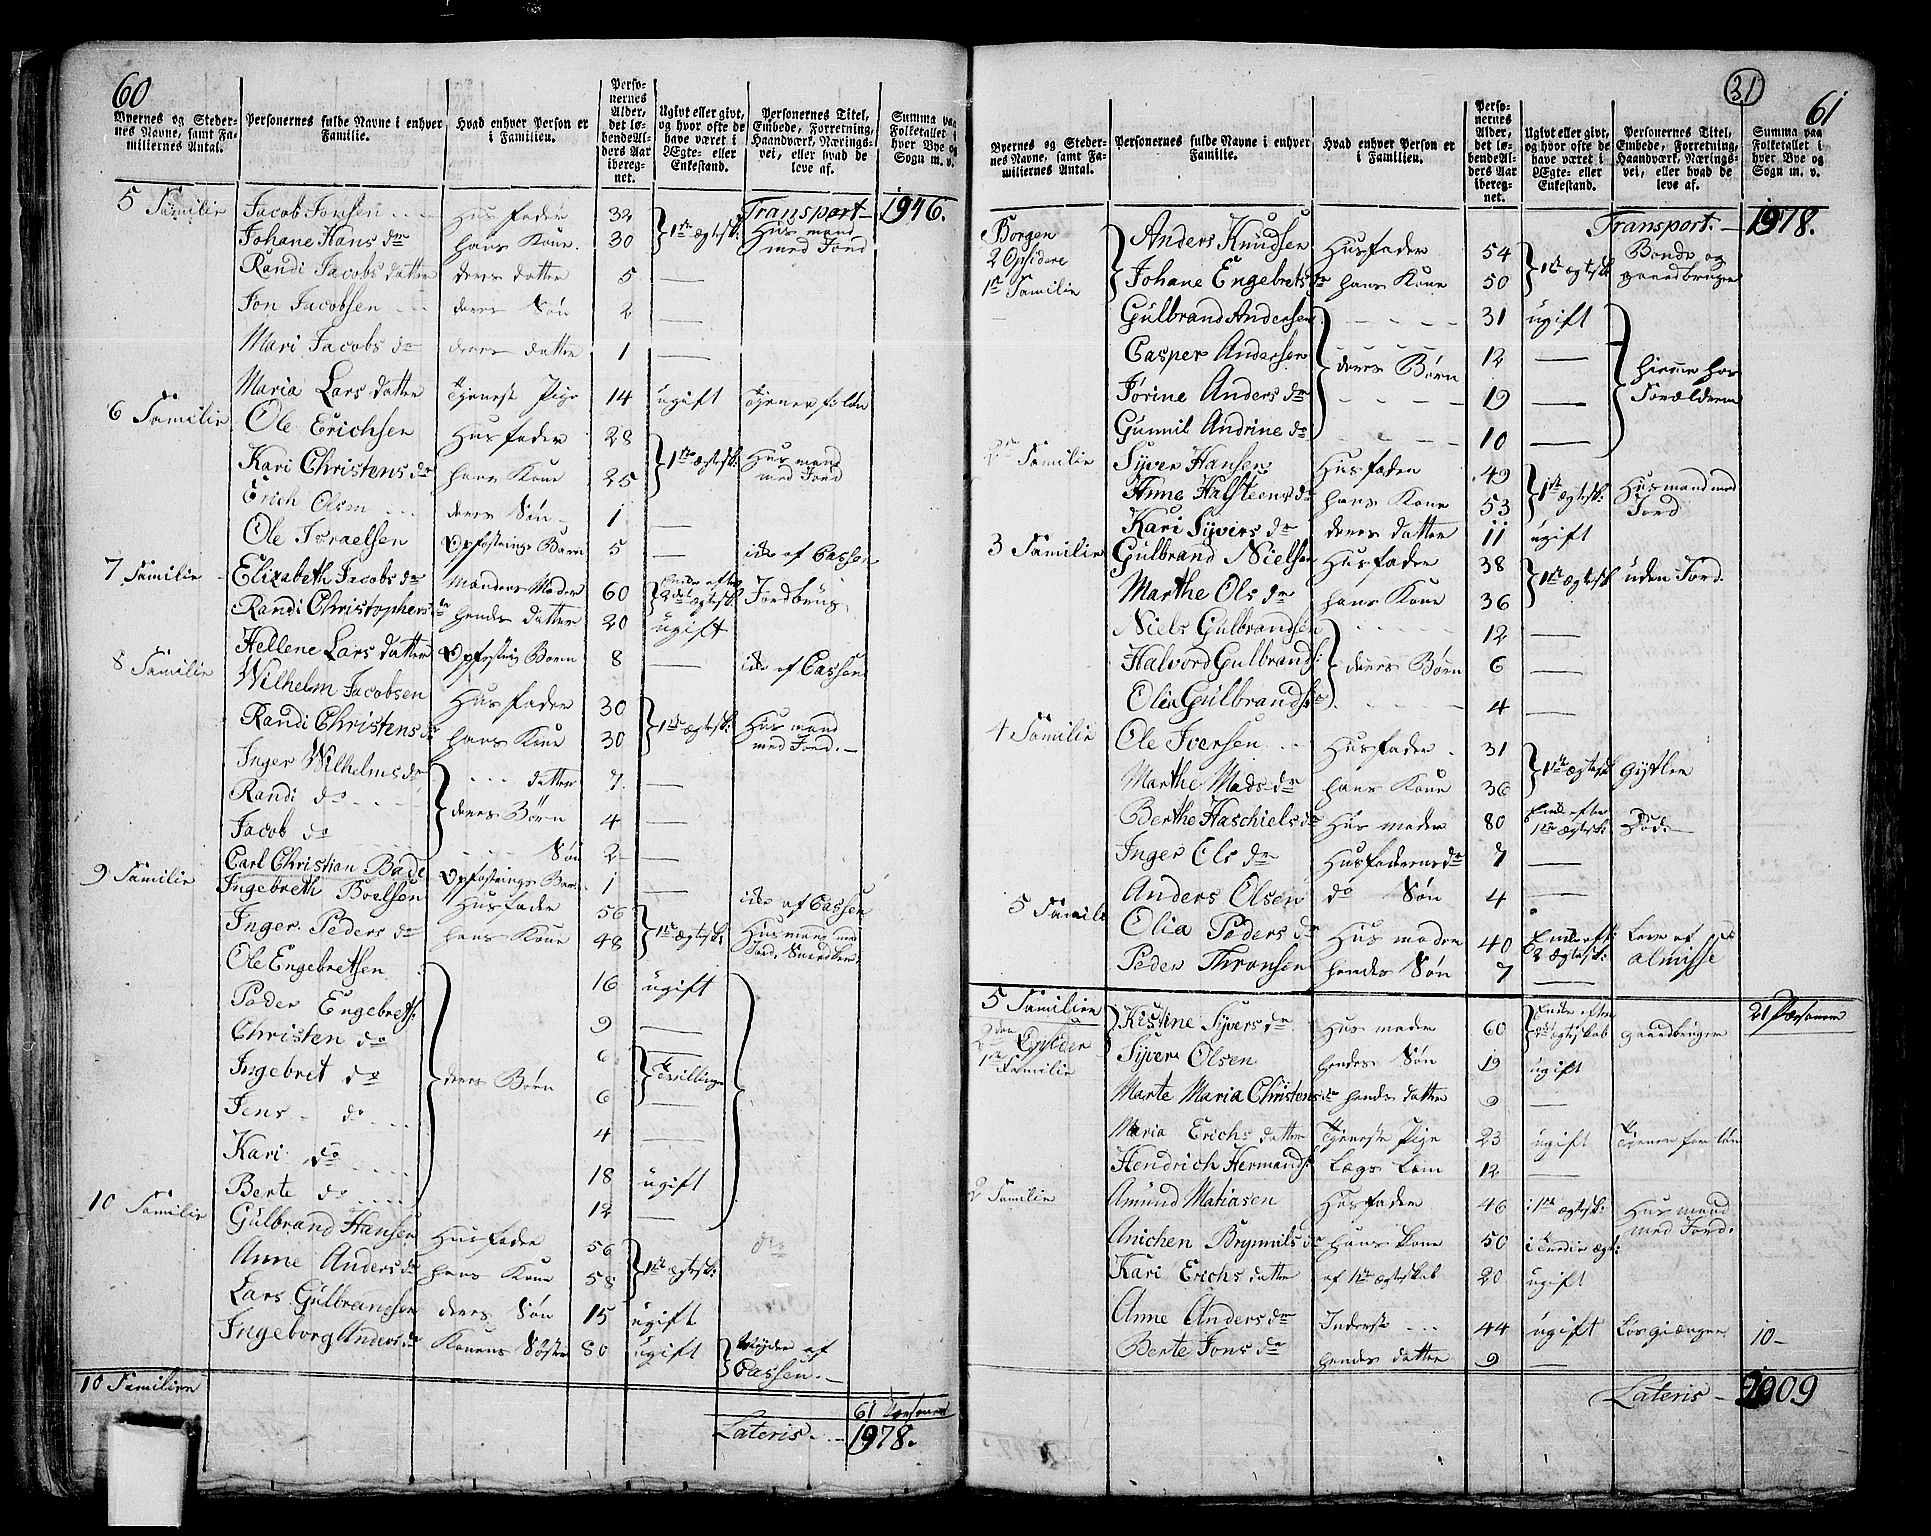 60
Byernes og Stedernes Navne, samt Familiernes Antal. | Personernes fulde Navne i enhver Familie. | Hvad enhver Person er i Familien. | Personernes Alder, det løbende Alders Aar iberegnet. | Ugivt eller givt, og hvor ofte de have været i Ægte- eller Enkestand. | Personernes Titel, Embede, Forretning, Haandværk, Næringsvei, eller hvad de leve af. | Summa paa Folketallet i hver Bye og Sogn m. v.
Transport 1946.
5 Familie Jacob Jonsen Husfader 32 1ste ægtesk: Huusmand
Johane Hans dr hans Kone 30 med Jord
Randi Jacobs datter deres datter 5 —
Jon Jacobsen deres Søn 2 —
Mari Jacobs dr deres datter 1 —
Maria Lars datter Tjeneste Pige 14 ugift
6 Familie Ole Erichsen Husfader 28 1ste ægtesk: Husmand
Kari Christens dr hans Kone 25 med Jord
Erich Olsen deres Søn 1 —
Ole Israelsen Opfostrings Barn 5 — af Cassen
7 Familie Elizabeth Jacobs dr Mandens Moder 60 Enke efter 2det ægtesk: Jordbrug
Randi Christophers dr hendes datter 20 ugift
Hellene Lars datter Opfostrings Barn 8 — af Cassen
8 Familie Wilhelm Jacobsen Husfader 30 1ste ægtesk: Husmand
Randi Christens dr hans Kone 30 med Jord.
Inger Wilhelms dr datter 7 —
Randi do deres Børn 4 —
Jacob do Søn 2 —
Carl Christian Bade Opfostrings Barn 1 — af Cassen
9 Familie Ingebreth Boelsen Husfader 56 1ste ægtesk: Husmand med
Inger Peders dr hans Kone 48 Jord,
Ole Engebretsen 16 ugift
Peder Engebrets: 9 —
Christen do 6 Tvillinger
Ingebret do deres Børn 6 —
Jens do 4 —
Kari do 18 ugift
Berte do 12 —
10 Familie Gulbrand Hansen Husfader 56 1ste ægtesk: do
Anne Anders dr hans Kone 58
Lars Gulbrandsen deres Søn 15 ugift
Ingeborg Anders dr Konens Søster 80 ugift Nyder af Cassen.
10 Familier 61 Personer
Lateris 1978.
31
61
Byernes og Stedernes Navne, samt Familiernes Antal. | Personernes fulde Navne i enhver Familie. | Hvad enhver Person er i Familien. | Personernes Alder, det løbende Alders Aar iberegnet. | Ugivt eller givt, og hvor ofte de have været i Ægte- eller Enkestand. | Personernes Titel, Embede, Forretning, Haandværk, Næringsvei, eller hvad de leve af. | Summa paa Folketallet i hver Bye og Sogn m. v.
Transport. 1978.
Borgen Anders Knudsen Husfader 54 1ste ægtesk Bonde og
2 Opsidere
1ste Familie Johane Engebrets dr hans Kone 50 gaardbruger
Gulbrand Andersen 31 ugift
Casper Andersen deres Børn 12 — hiemme hos
Jørine Anders dr 19 — Forældrene
Gunnil Andrine do 10 —
2den Familie Syver Hansen Husfader 49 1ste ægtesk: Husmand med
Anne Halsteens dr hans Kone 53 Jord
Kari Syvers dr deres datter 11 ugift
3 Familie Gulbrand Nielsen Husfader 38 1ste ægtesk uden Jord.
Marthe Ols dr hans Kone 36
Niels Gulbrandsen 12 —
Halvord Gulbrands: deres Børn 6 —
Olia Gulbrands dr 4 —
4 Familie Ole Iversen Husfader 31 1ste ægtesk
Marthe Mads dr hans Kone 36
Berthe Haschiels dr Hus moder 80 Enke efter 1ste ægtesk:
Inger Ols dr Husfaderens dr 7 —
Anders Olsen do Søn 4 —
5 Familie Olia Peders dr Husmoder 40 Enke eft: 2 ægtesk: Leve af almisse
Peder Thronsen hendes Søn 7 —
5 Familier 21 Personer
2den Opsidder Kistine Syvers dr Husmoder 60 Enke efter 2det ægteskab gaardbruger
1ste Familie Syver Olsen hendes Søn 19 ugift
Marte Maria Christens dr hendes datter 9 —
Maria Erichs datter Tjeneste Pige 23 ugift Tjener for løn
Hendrich Hermands: Lægs Lem 12 —
2 Familie Amund Matiasen Husfader 46 i 1ste ægtesk: Husmand
Anichen Brynnils dr hans Kone 50 med Jord.
Kari Erichs datter af 1ste ægteskab 20 ugift
Anne Anders dr Inderste 44 ugift Løsgiænger 10-
Berte Jons dr hendes datter 9 —
Lateris 2009